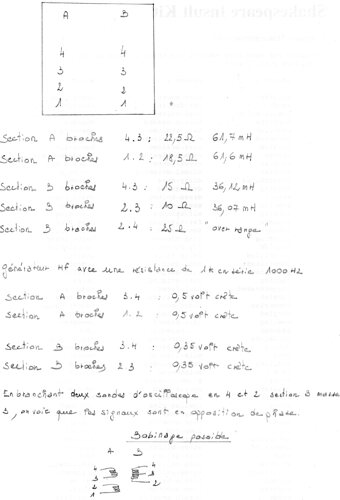 A B
4 4
3 3
2 2
1 1
Section A broches 4.3 : 22,5 Ω 61,7 mH
Section A broches 1.2 : 18,5 Ω 61,6 mH
Section B broches 4.3 : 15 Ω 36,12 mH
Section B broches 2.3 : 10 Ω 36,07 mH
Section B broches 2.4 : 25 Ω "over range"
Générateur Hf avec une résistance de 1K en série 1000 HZ
Section A broches 3.4 : 0,5 volt crête
Section A broches 1.2 : 0,5 volt crête
Section B broches 3.4 : 0,35 volt crête
Section B broches 2 3 : 0,35 volt crête
En branchant deux sondes d'oscilloscope en 4 et 2 section B masse
3, on voit que les signaux sont en opposition de phase.
Bobinage possible
A B
4 4
3 3
2 2
1